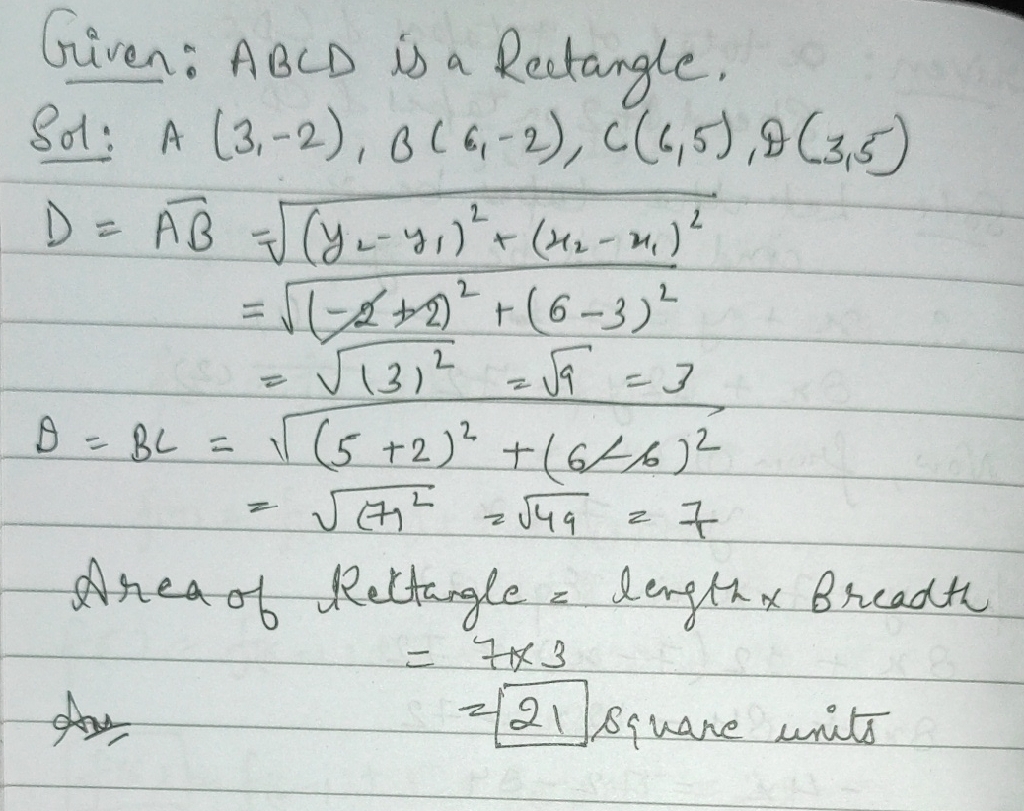 Given: ABCD is a Rectangle.
Sol: A (3,-2), B (6,-2), C(6,5), D(3,5)
D = AB = √(y₂-y₁)² + (x₂-x₁)²
= √(-2+2)² + (6-3)²
= √(3)² = √9 = 3
D = BC = √(5+2)² + (6-6)²
= √(7)² = √49 = 7
Area of Rectangle = length x Breadth
= 7x3
Ans = 21 square units